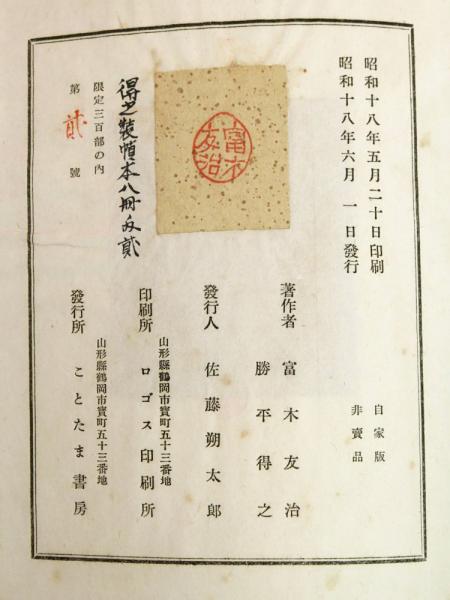 昭和十八年五月二十日印刷
昭和十八年六月一日發行
自家版
非賣品
著作者 富木友治
勝平得之
發行人 佐藤朔太郎
山形縣鶴岡市寳町五十三番地
印刷所 ロゴス印刷所
山形縣鶴岡市寳町五十三番地
發行所 ことたま書房
富木
友治
得之裝幀本八冊ノ内貳
限定三百部の內
第貳號